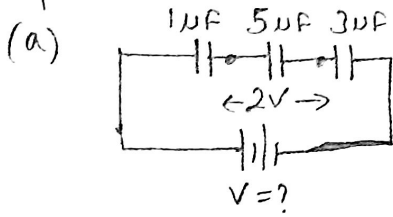 (a)
1μF 5μF 3μF
←2V→
V=?